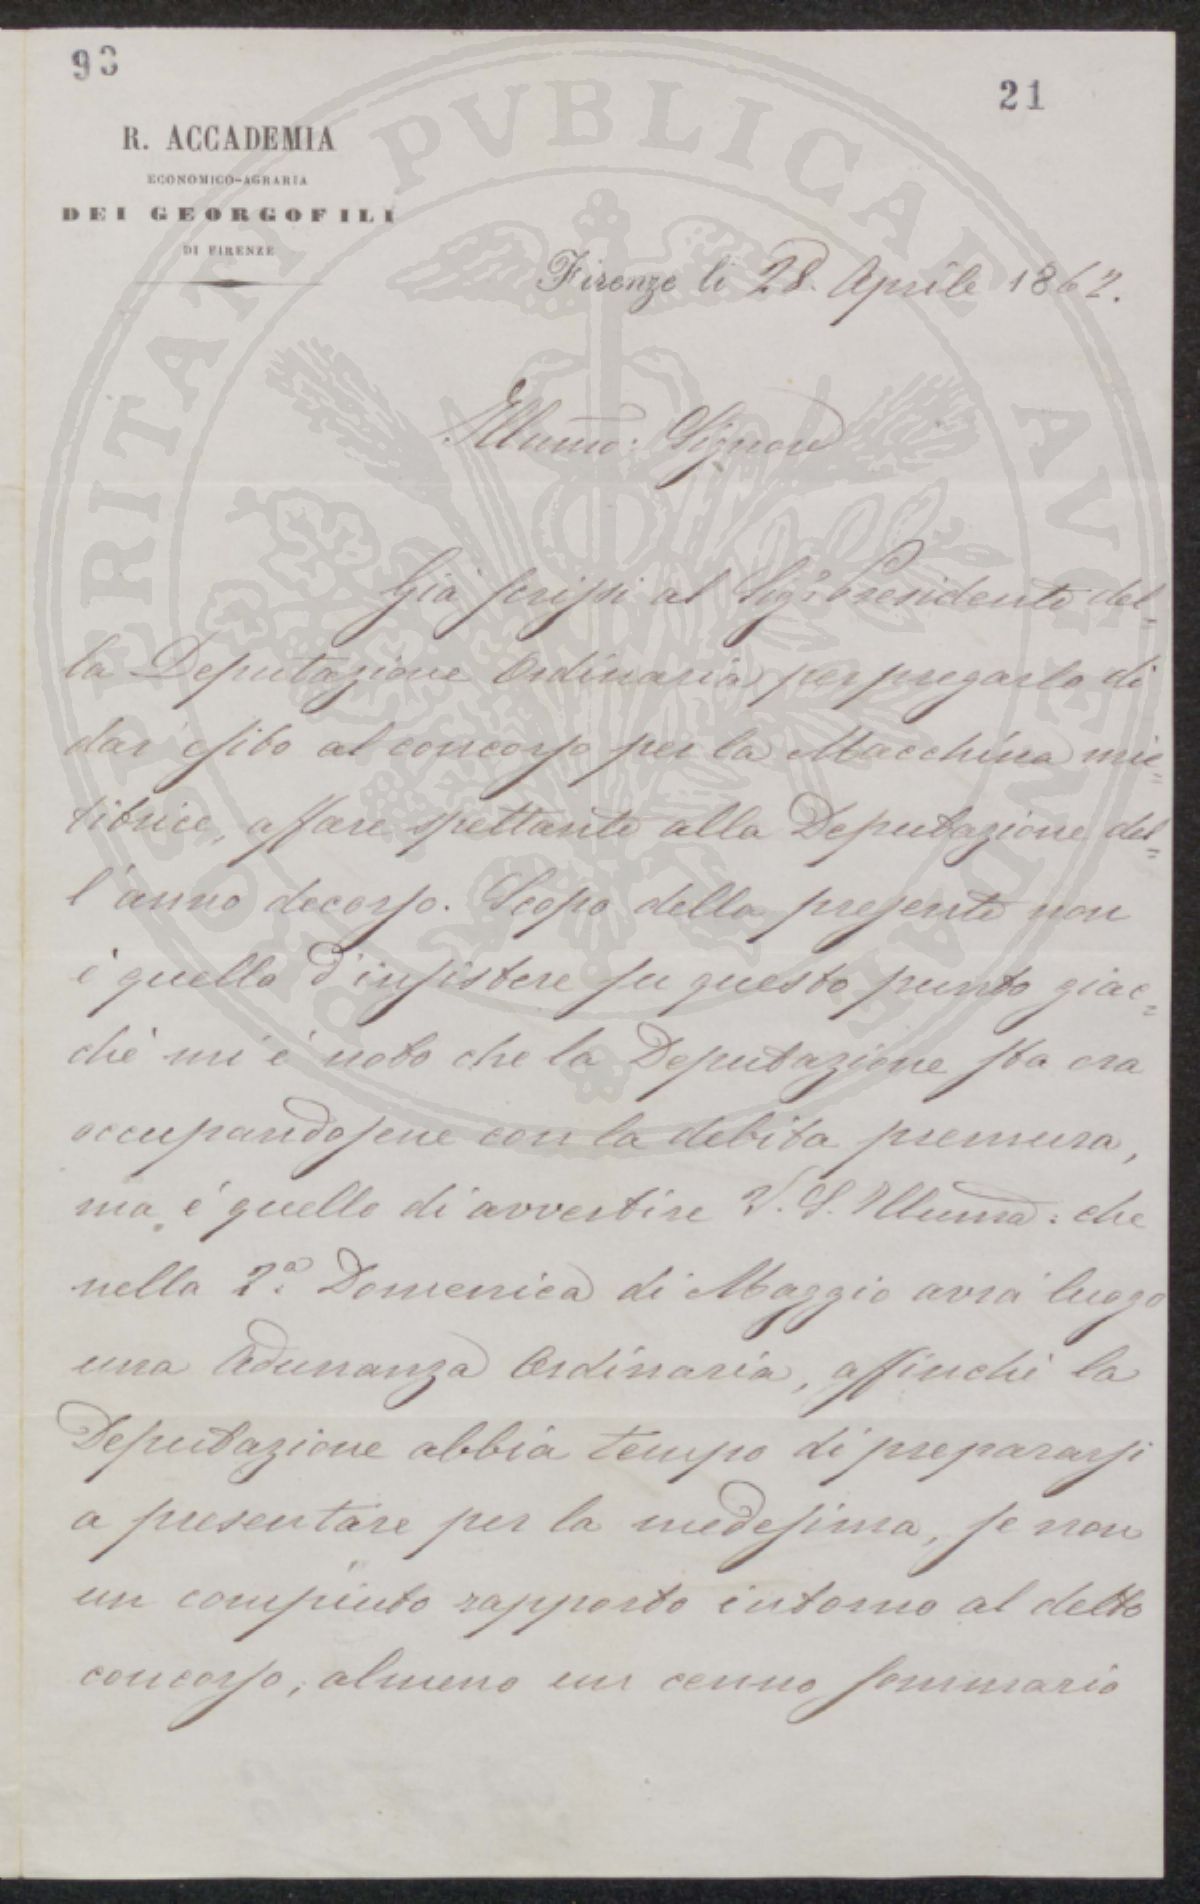 93
21
R. ACCADEMIA
ECONOMICO-AGRARIA
DEI GEORGOFILI
DI FIRENZE
Firenze li 28. Aprile 1862.
Illumo: Signore
Già scrissi al Sigr: Presidente del=
la Deputazione Ordinaria per pregarlo di
dar esito al concorso per la Macchina mie=
titrice, affare spettante alla Deputazione del=
l'anno decorso. Scopo della presente non
è quello d'insistere su questo punto giac=
chè mi è noto che la Deputazione sta ora
occupandosene con la debita premura,
ma è quello di avvertire V. S. Illuma: che
nella 2a. Domenica di Maggio avrà luogo
una Adunanza Ordinaria, affinchè la
Deputazione abbia tempo di prepararsi
a presentare per la medesima, se non
un compiuto rapporto intorno al detto
concorso, almeno un cenno sommario
PROSPERITATI PVBLICAE AVGENDAE